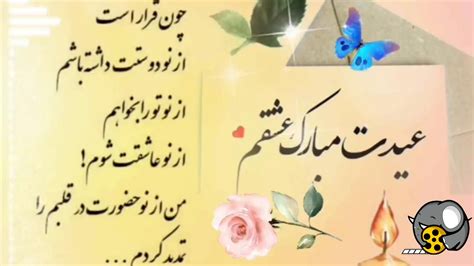 چون قرار است
از نو دوستت داشته باشم
از نو تو را بخواهم
از نو عاشقت شوم!
من از نو حضورت در قلبم را
تمدید کردم ...
عیدت مبارک عشقم